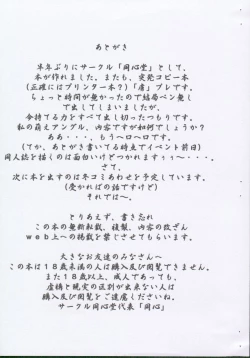 あとがき
半年ぶりにサークル「同心堂」として、
本が作れました。またも、突発コピー本
(正確にはプリンター本?)「虐」プレです。
ちょっと時間が無かったので結局ペン無し
で出してしまいましたが、
今持てる力をすべて出し切ったつもりです。
私の萌えアングル、内容ですが如何でしょうか?
ああ・・、もうヘロヘロです。
(てか、あとがき書いてる時点でイベント前日)
同人誌を描くのは面白いけどつかれますぅぅ〜・・。
さて、
次に本を出すのは冬コミあわせを予定しています。
(受かればの話ですけど)
それでは〜。
とりあえず、書き忘れ
この本の無断転載、複製、内容の改ざん
web上への掲載を禁じさせてもらいます。
大きなお友達のみなさんへ
この本は18歳未満の人は購入及び閲覧できません。
また18歳以上、成人であっても、
虚構と現実の区別が出来ない人は
購入及び閲覧をご遠慮くださいね。
サークル同心堂代表「同心」